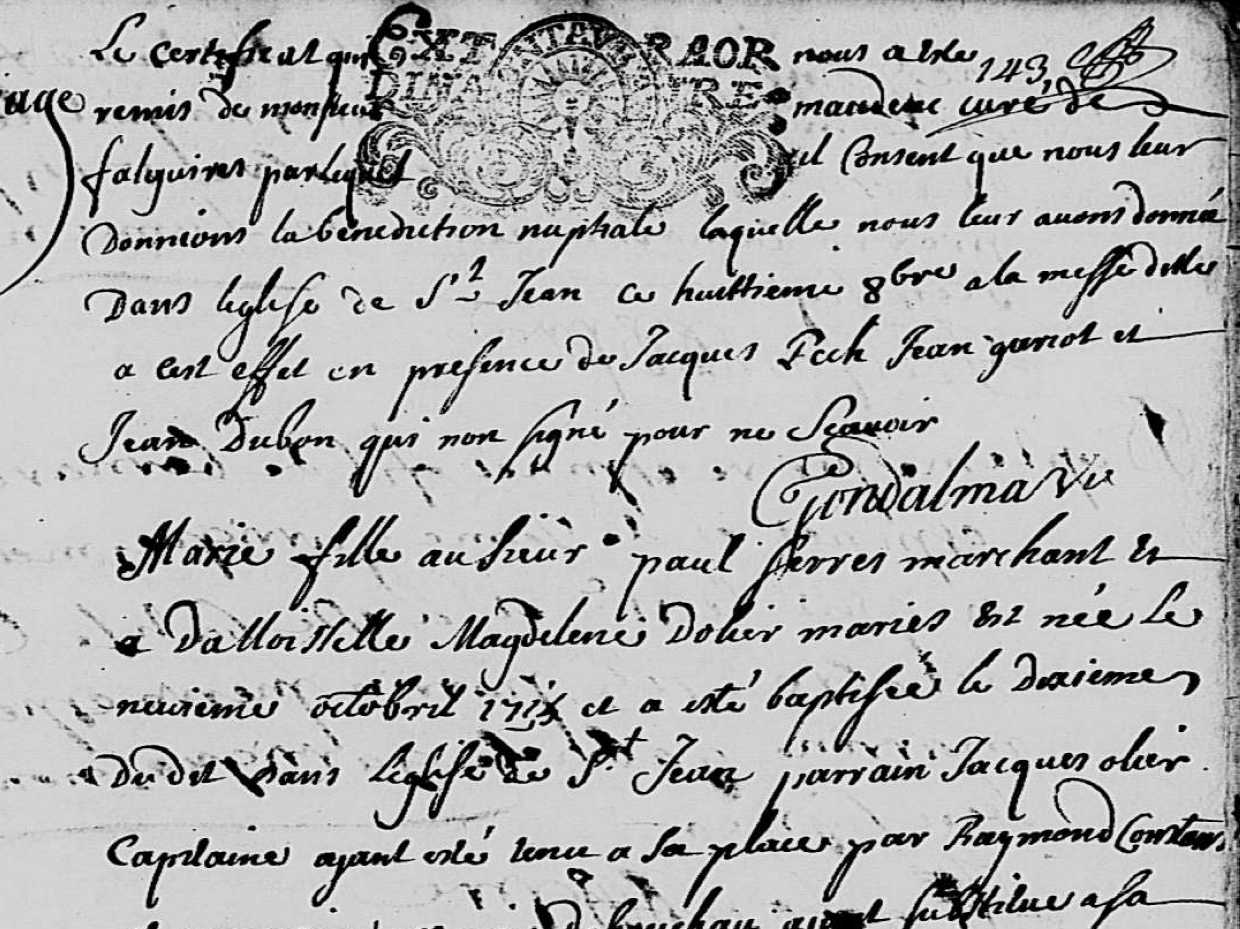 Le certificat qui EXTRAORDINAIRE nous a este 143
age remis de monsieur curé de
falguires par lequel il Consent que nous leur
Donnions la bénédiction nuptiale laquelle nous leur avons donnée
Dans leglise de St Jean ce huittieme 8bre a la messe ditte
a cest effet en presence de Jacques Pech Jean gariot et
Jean Dubon qui non signé pour ne Scavoir
Gondalma
Marie fille au sieur paul serres marchant et
a Magdelene Dolier maries est née le
neuvieme octobril et a esté baptisée le dixieme
Du dit Dans Leglise de St Jean parrain Jacques olier
Capitaine ayant esté tenu a sa place par Raymond Constans
ayant substitue a sa